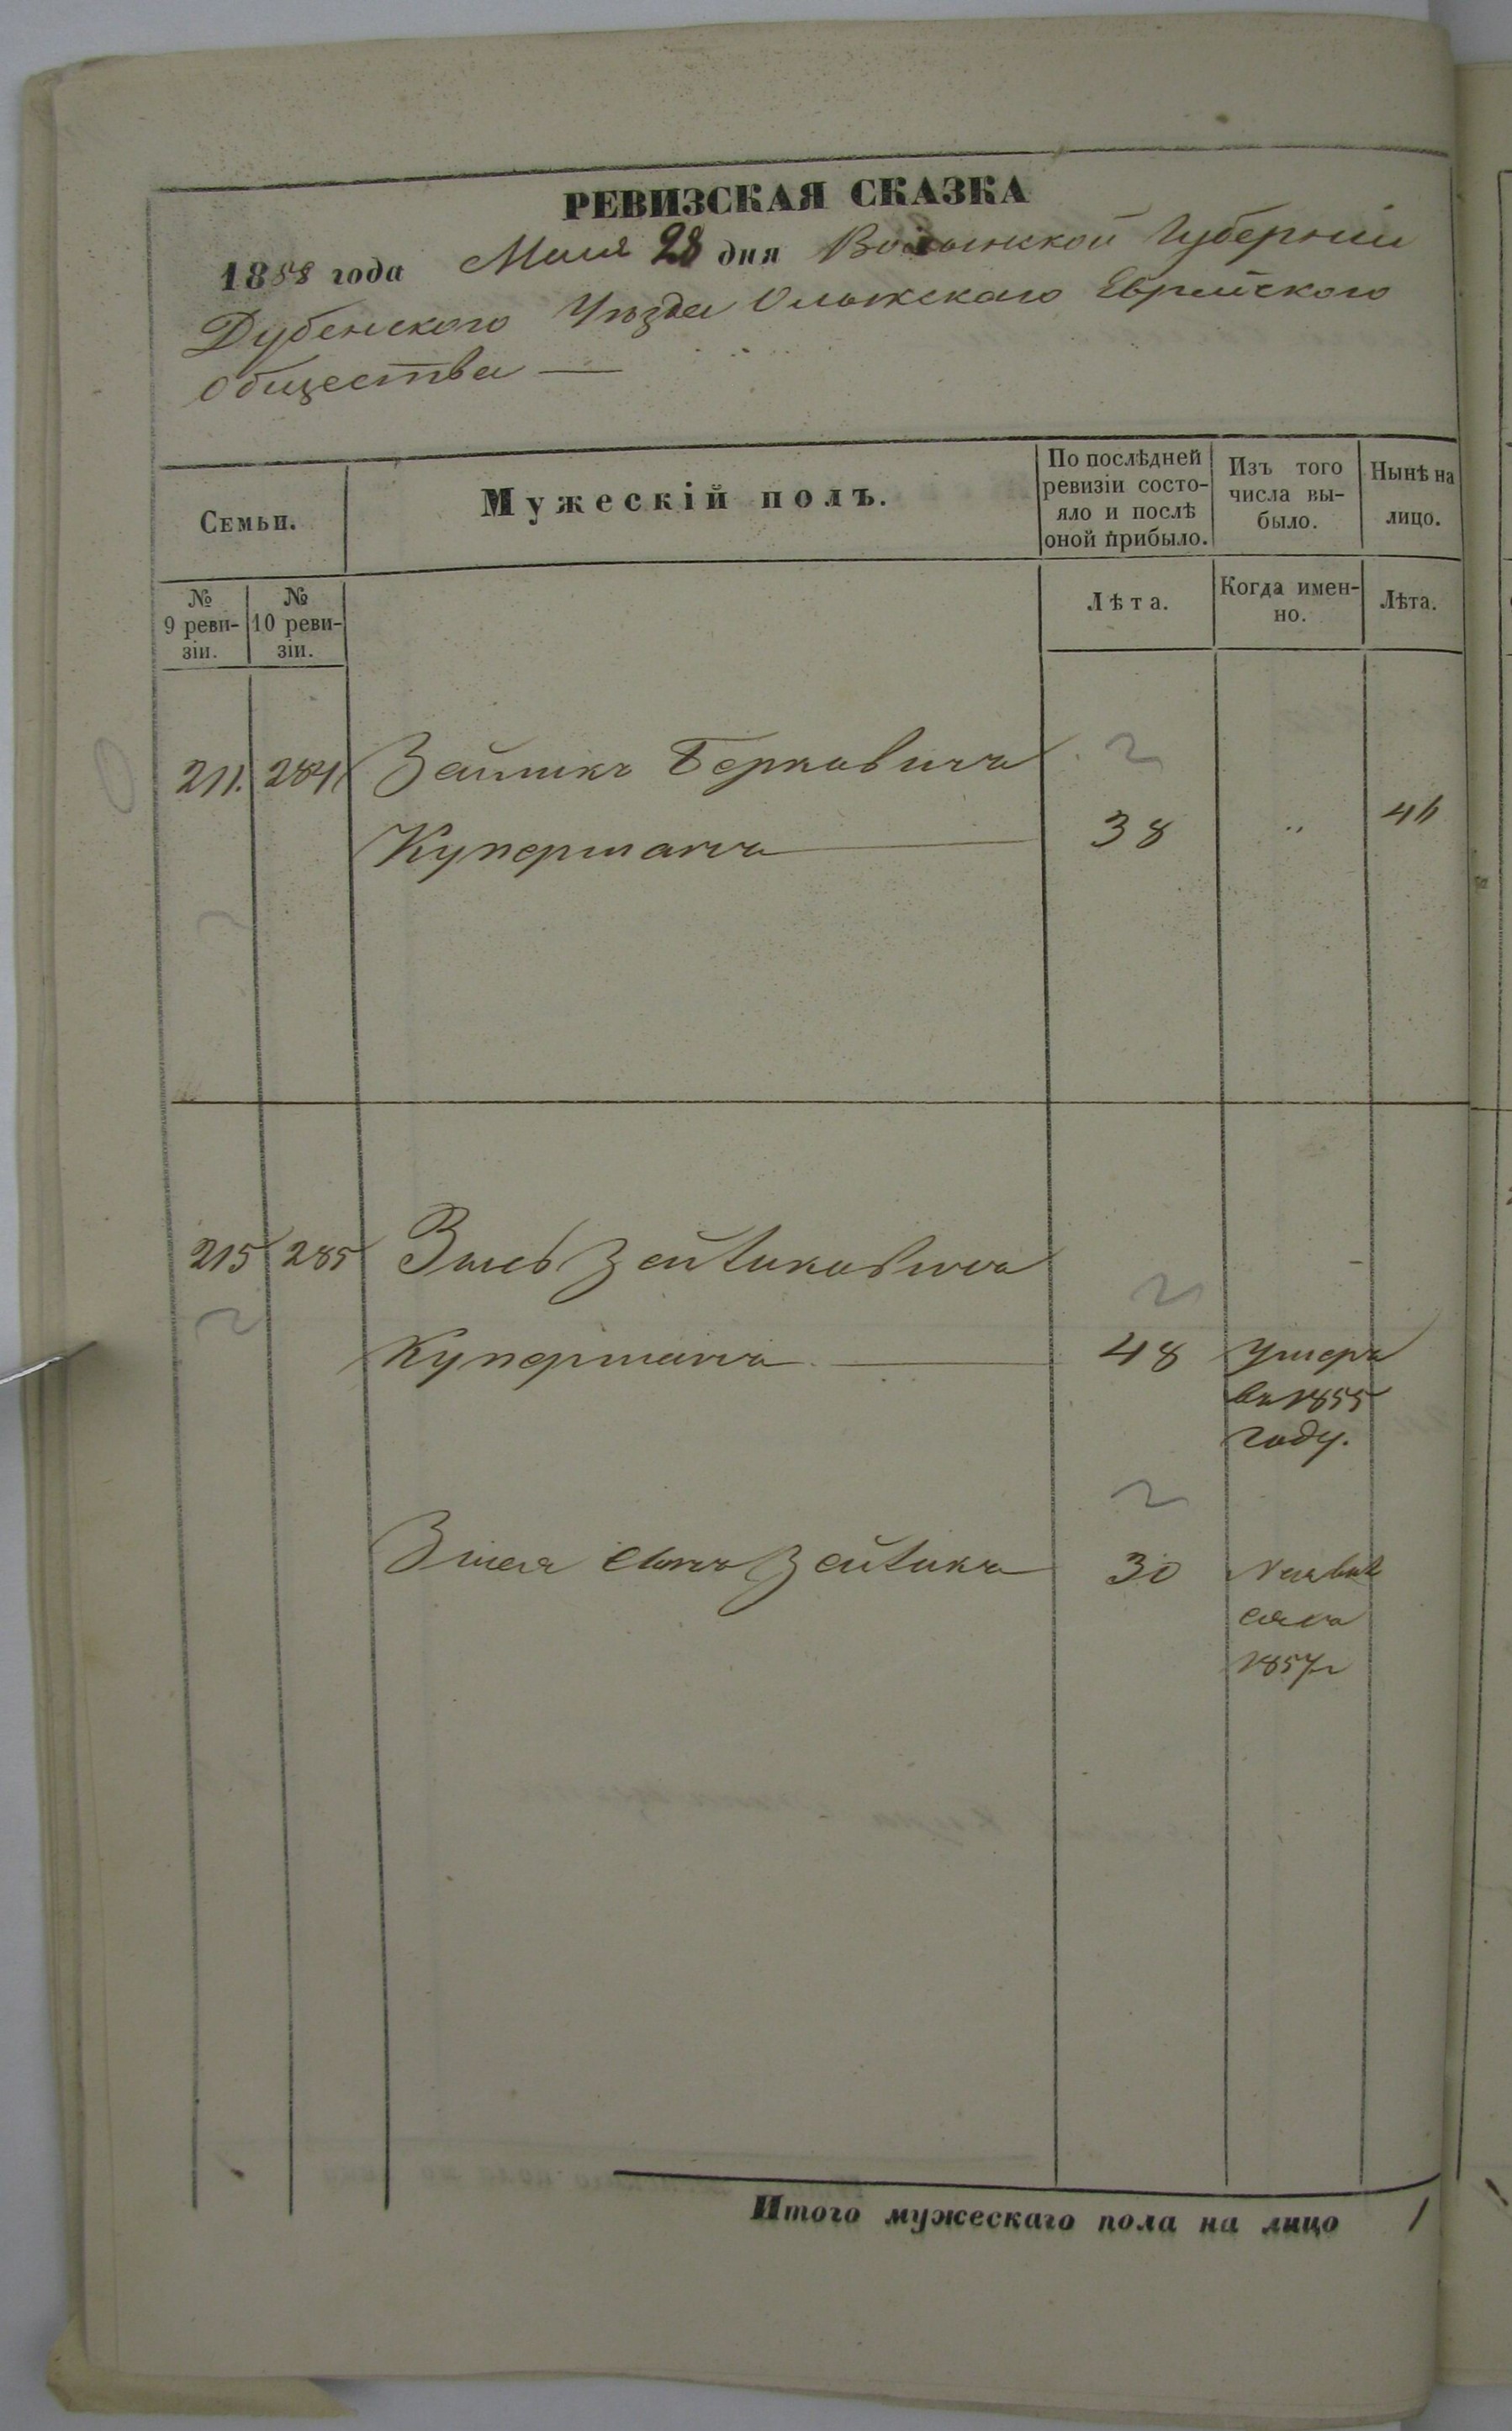 РЕВИЗСКАЯ СКАЗКА
1858 года Маия 28 дня Волынской Губерніи
Дубенского Уѣзда Олыкскаго Еврейского
Общества —
Семьи.
Мужескій полъ.
По послѣдней ревизіи состо-
яло и послѣ
оной прибыло.
Изъ того
числа вы-
было.
Нынѣ на
лицо.
№
9 реви-
зіи.
№
10 реви-
зіи.
Лѣта.
Когда имен-
но.
Лѣта.
211. 284 Берковичъ
Куперманъ — 38 " 46
215 285 Зейликовичъ
Куперманъ — 48 Умеръ
въ 1855
году.
сынъ Зейликъ 30
1857
Итого мужескаго пола на лицо 1